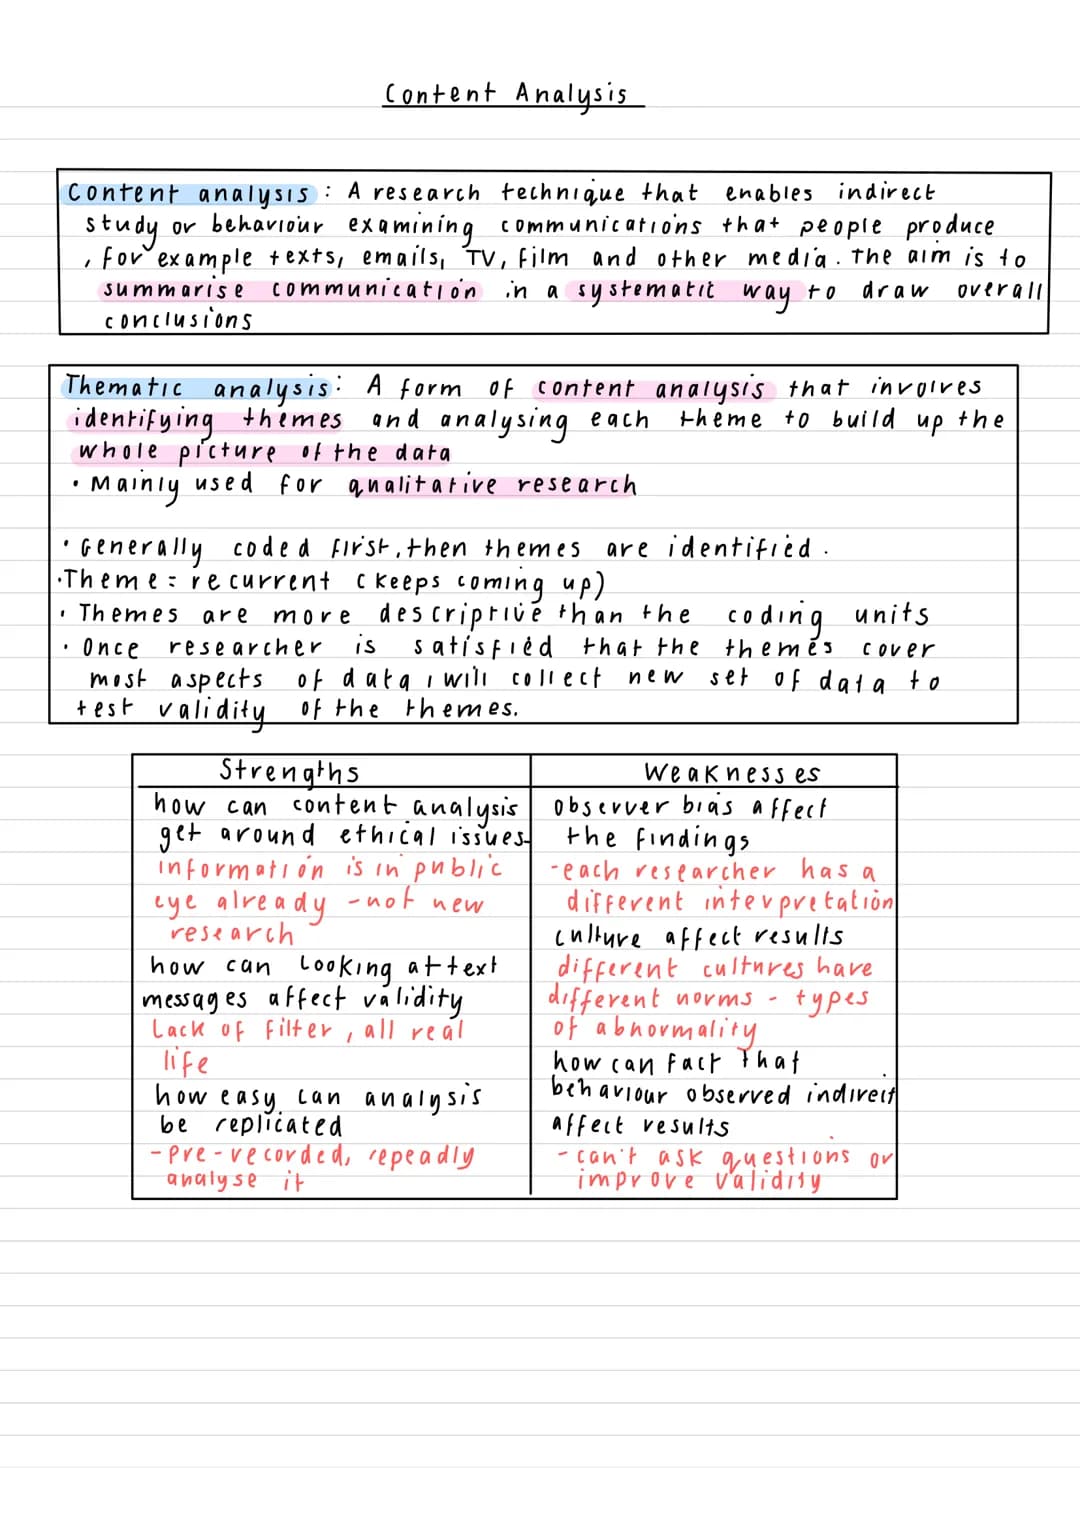 Content Analysis
Content analysis : A research technique that enables indirect
study or behaviour examining communications that people produce
, for example texts, emails, TV, film and other media. The aim is to
summarise communication in a systematic way to draw overall
conclusions
Thematic analysis: A form of content analysis that involves
identifying themes and analysing each theme to build up the
whole picture of the data
• Mainly used for qualitative research
• Generally coded first, then themes are identified.
• Theme = recurrent (keeps coming up)
• Themes are more descriptive than the coding units
• Once researcher is satisfied that the themes cover
most aspects of data, will collect new set of data to
test validity of the themes.
Strengths
how can content analysis
get around ethical issues
information is in public
eye already - not new
research
how can looking at text
messages affect validity
Lack of filter, all real
life
how easy can analysis
be replicated
- Pre-recorded, repeadly
analyse it
Weaknesses
observer bias affect
the findings
- each researcher has a
different interpretation
culture affect results
different cultures have
different norms - types
of abnormality
how can fact that
behaviour observed indirect
affect results
- can't ask questions or
improve validity